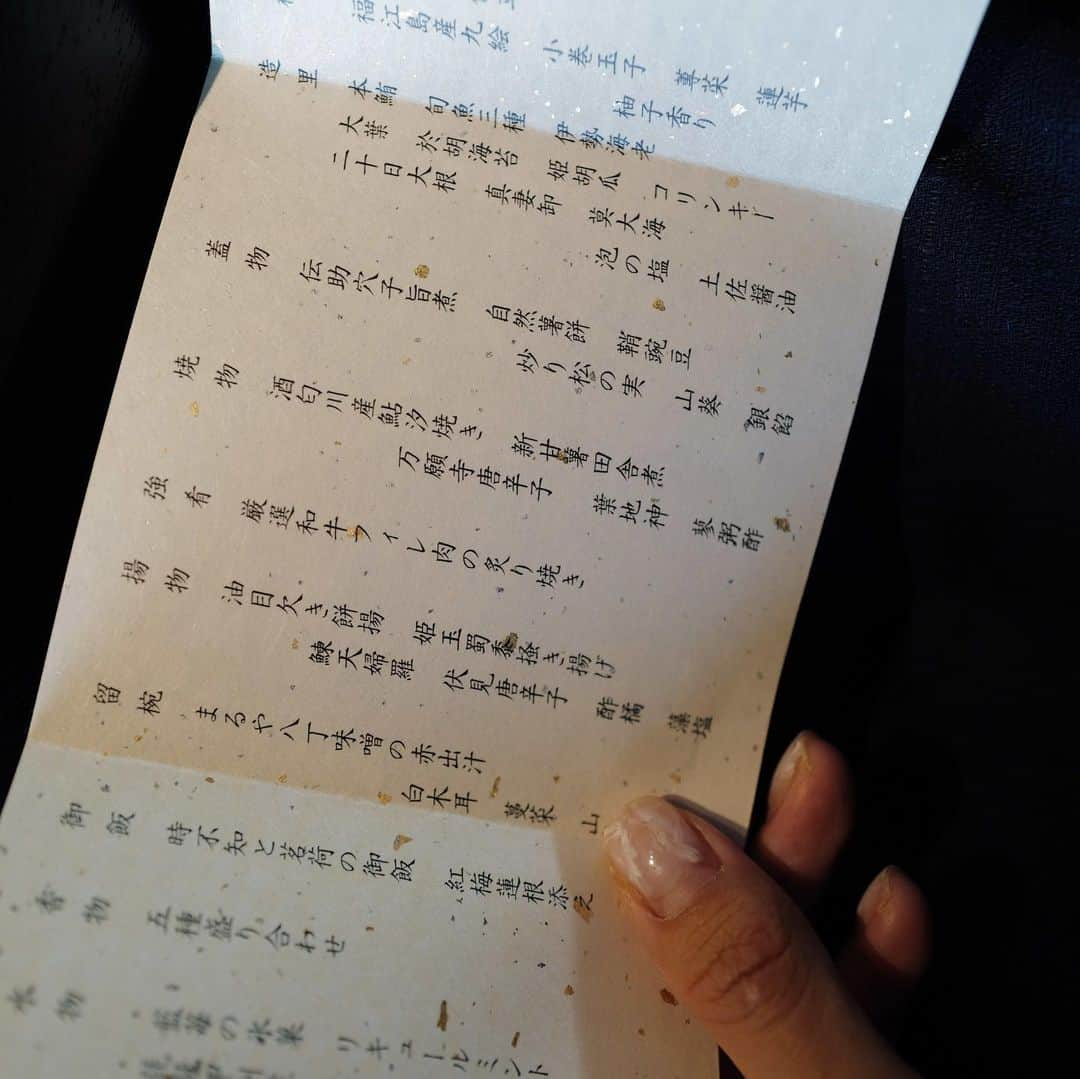 福江島産九絵
小巻玉子 蓴菜 蓮芋
柚子香り
造里 本鮪 旬魚三種 伊勢海老
大葉 於胡海苔 姫胡瓜 コリンキー
二十日大根 真妻卸 莫大海
泡の塩 土佐醤油
蓋物 伝助穴子旨煮
自然薯餅 鞘豌豆
炒り松の実 山葵 銀餡
焼物 酒匂川産鮎汐焼き
新甘薯田舎煮
万願寺唐辛子 葉地神 蓼粥酢
強肴 厳選和牛フィレ肉の炙り焼き
揚物 油目欠き餅揚 姫玉蜀黍掻き揚げ
鰊天婦羅 伏見唐辛子 酢橘 藻塩
留椀 まるや八丁味噌の赤出汁
白木耳 蔓菜 山
御飯 時不知と茗荷の御飯
紅梅蓮根添え
香物 五種盛り合わせ
水物 藍苺の氷菓 リキュールミント